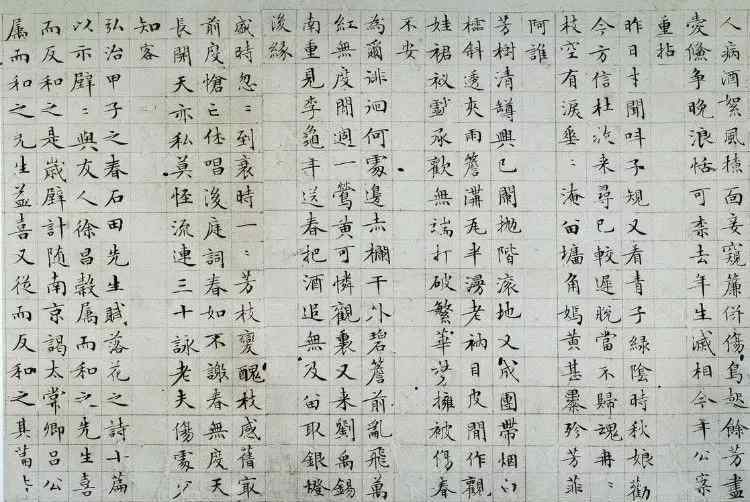 人病酒絮風撩面妾窺簾衍傷鳥啄餘芳盡
儉爭晚浪恬可柰去年生滅相今年公案
重拈
昨日才聞叫子規又看青子綠陰時秋娘勸
今方信杜牧來尋已較遲脫當不歸魂冉〻
枝空有淚垂〻淹留墻角嫣黃甚纍殄芳菲
阿誰
芳樹清罇興已闌拋階滾地又成團帶烟
斜透夾雨簷溝瓦半漫老衲目皮閒作觀
娃裙衩戲承歡無端打破繁華夢擁被傷春
不安
為爾徘徊何處邊赤欄干外碧簷前亂飛萬
紅無度閱遍一鶯黃可憐觀裏又来劉禹錫
南重見李龜年送春把酒追無及留取銀燈
後緣
盛時忽〻到衰時一〻芳枝變醜枝感舊最
前度愴亡休唱後庭詞春如不謝春無度天
長開天亦私莫怪流連三十詠老夫傷處少
知客
弘治甲子之春石田先生賦落花之詩十篇
以示璧〻與友人徐昌穀属而和之先生喜
而反和之是歲璧計随南京謁太常卿呂公
属而和之先生益喜又從而反和之其